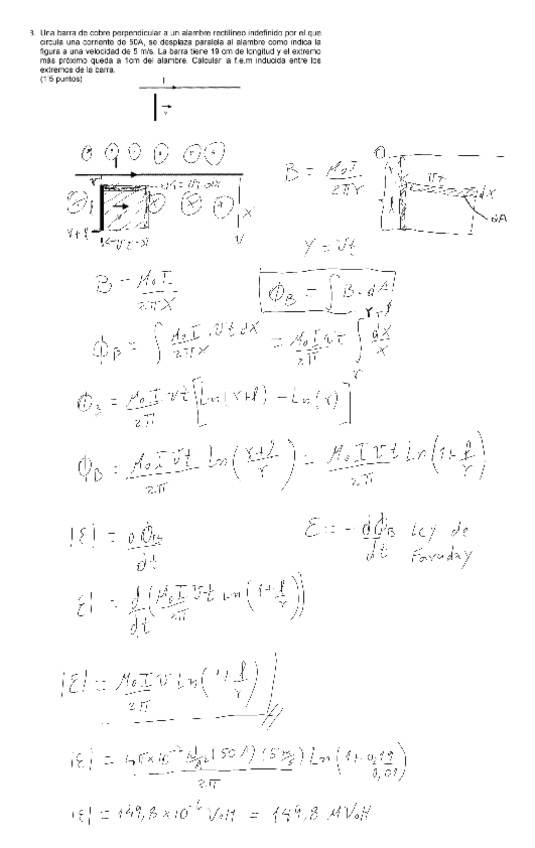 3. Una barra de cobre perpendicular a un alambre rectilíneo indefinido por el que
circula una corriente de 50A, se desplaza paralela al alambre como indica la
figura a una velocidad de 5 m/s. La barra tiene 19 cm de longitud y el extremo
más próximo queda a 1cm del alambre. Calcular la f.e.m inducida entre los
extremos de la barra.
(1'5 puntos)
I
v
B = μ₀I / 2πr
r+l
vt
dx
dA
Y = vt
B = μ₀I / 2πX
ϕ_B = ∫ B · dA
ϕ_B = ∫ μ₀I / 2πX · vt dX = μ₀I vt / 2π ∫_r^{r+l} dX / X
ϕ_B = μ₀I / 2π vt [Ln(r+l) - Ln(r)]
ϕ_B = μ₀I vt / 2π Ln((r+l) / r) = μ₀I vt / 2π Ln(1 + l/r)
|ε| = dϕ_B / dt
ε = - dϕ_B / dt Ley de Faraday
|ε| = d/dt (μ₀I vt / 2π Ln(1 + l/r))
|ε| = μ₀I v / 2π Ln(1 + l/r)
|ε| = (50A) (5 m/s) / 2π Ln(1 + 0,19 / 0,01)
|ε| = 149,8 x10⁻⁶ Volt = 149,8 μVolt